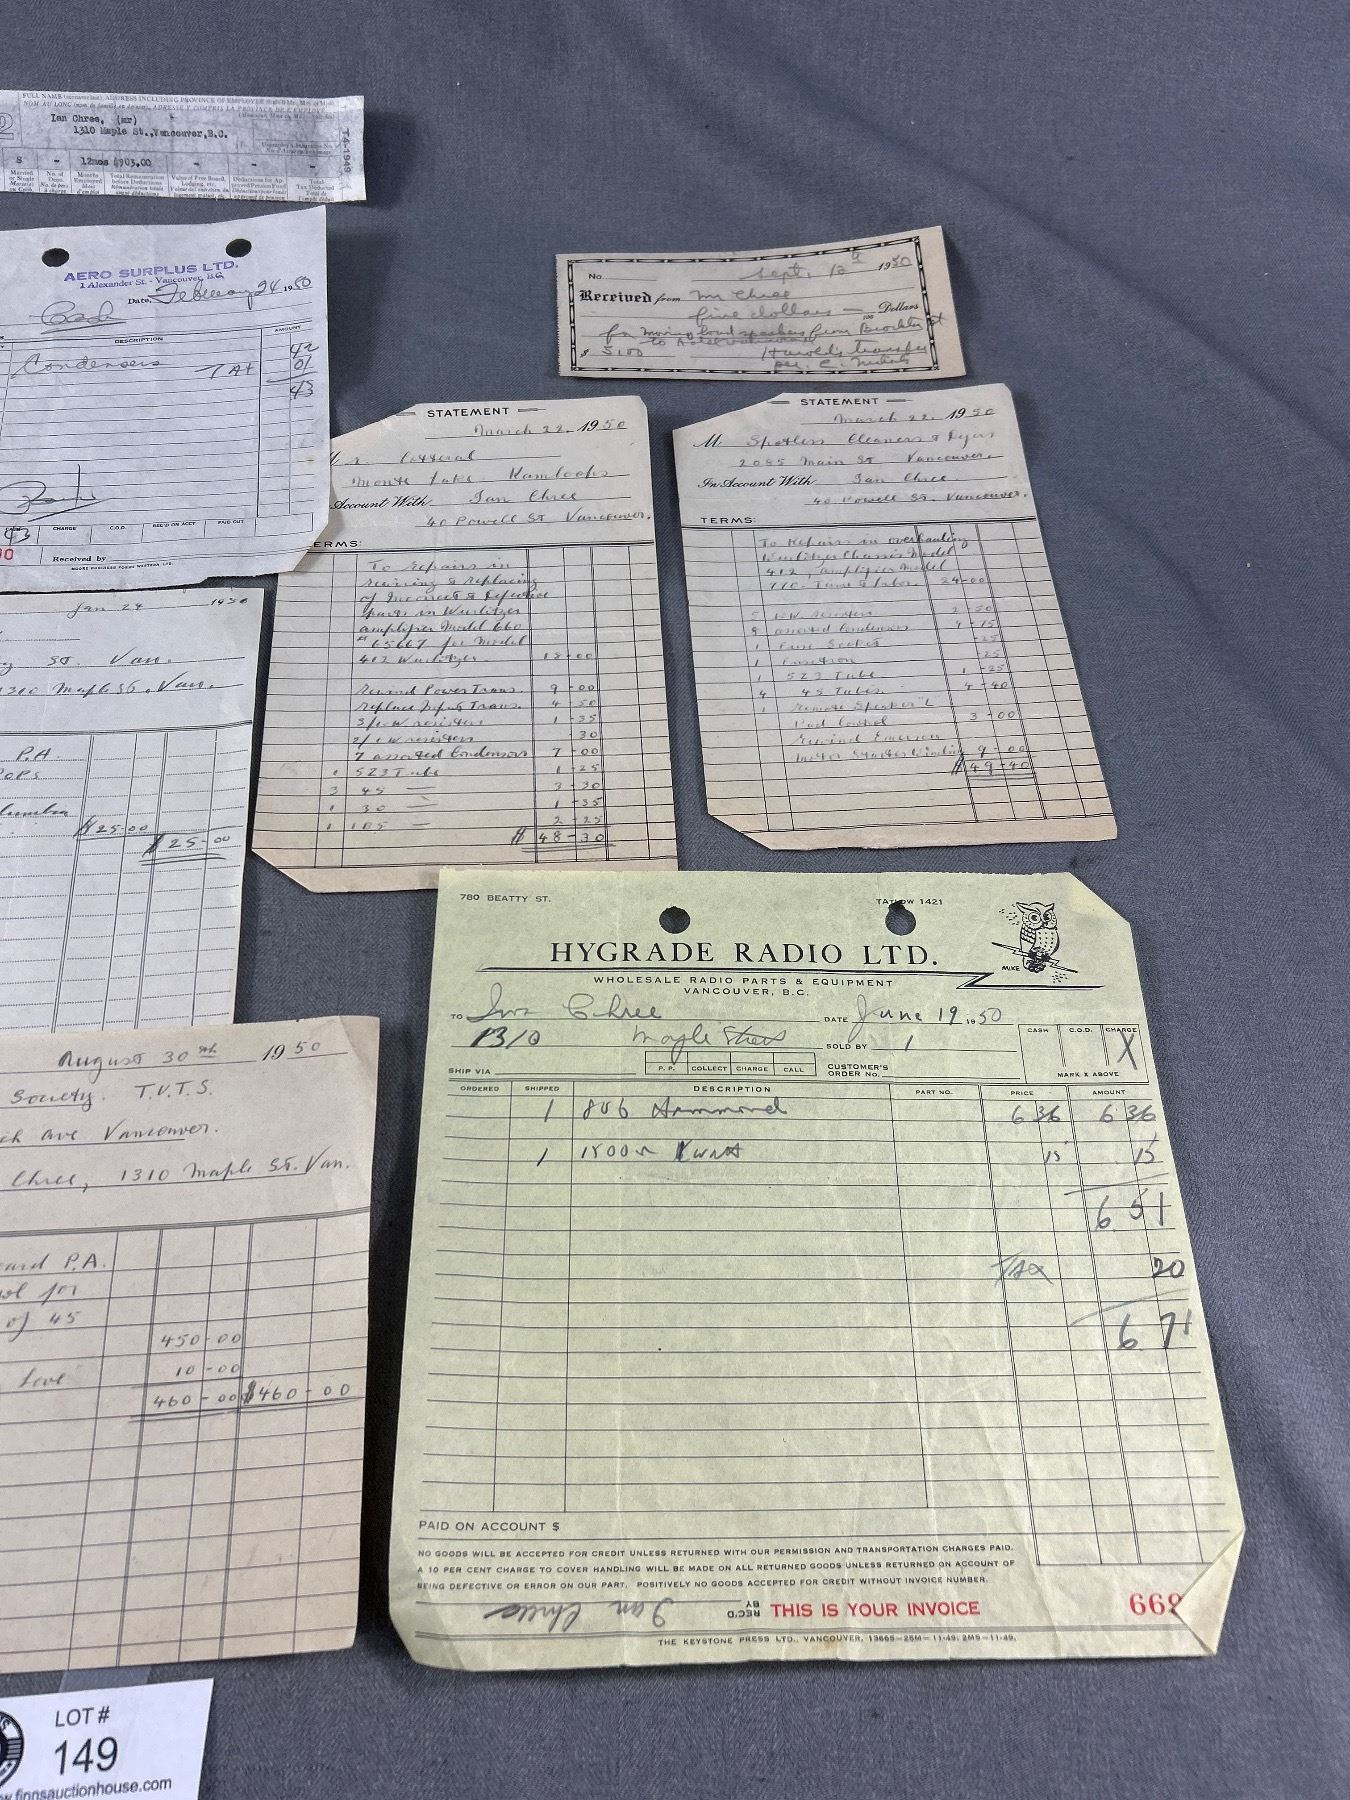 FULL NAME (surname last) ADDRESS INCLUDING PROVINCE OF EMPLOYEE
NOM AU LONG ADRESSE Y COMPRIS LA PROVINCE DE L'EMPLOYÉ
Ian Chree, (mr)
1310 Maple St.,Vancouver,B.C.
T4-1949
S - 12mos $903.00 - - -
AERO SURPLUS LTD.
1 Alexander St. - Vancouver, B.C.
Date, February 24 1950
Cash
DESCRIPTION AMOUNT
Condensers 42
TAX 01
43
43 CHARGE C.O.D. REC'D ON ACCT PAID OUT
Received by
MOORE BUSINESS FORMS WESTERN LTD.
Jan 24 1950
St. Van.
1310 Maple St. Van.
P.A.
$25-00
$25-00
August 30th 1950
Society. T.V.T.S.
Ave Vancouver.
Chree, 1310 Maple St. Van.
P.A.
for
of 45
450-00
10-00
460-00 $460-00
No. Sept. 12th 1950
Received from Mr Chree
five dollars — 100 Dollars
for Moving loud speakers from
$ 5.00 Harolds transfer
STATEMENT
March 22. 1950
Monte Lake Kamloops
Account With Ian Chree
40 Powell St Vancouver.
TERMS:
To repairs in
rewiring & replacing
of Incorrect & Defective
parts in Wurlitzer
amplifier Model 660
for Model
412 Wurlitzer 18-00
Rewind Power Trans. 9-00
Replace Input Trans. 4-50
resistors 1-35
resistors 30
7 assorted Condensors 7-00
1 5Z3 Tube 1-25
3 45 — 3-30
1 30 — 1-35
1 — 2-25
$48-30
STATEMENT
March 22, 1950
M Spotless Cleaners & Dyers
2085 Main St Vancouver.
In Account With Ian Chree
40 Powell St. Vancouver.
TERMS:
To Repairs in overhauling
Wurlitzer Chassis Model
412, amplifier Model
710. Time & Labor 24-00
resistors 2-50
assorted Condensors
1 Fuse Socket -25
1 Fusetron -25
1 5Z3 Tube 1-25
4 45 Tubes 4-40
1 Remote Speaker "L"
Pad Control 3-00
Rewind Emerson
Motor Starter Winding 9-00
$49-40
780 BEATTY ST. TATLOW 1421
HYGRADE RADIO LTD.
MIKE
WHOLESALE RADIO PARTS & EQUIPMENT
VANCOUVER, B.C.
TO Ian Chree DATE June 19 1950
1310 Maple Street SOLD BY 1
CASH C.O.D. CHARGE X
MARK X ABOVE
SHIP VIA P.P. COLLECT CHARGE CALL CUSTOMER'S ORDER NO.
ORDERED SHIPPED DESCRIPTION PART NO. PRICE AMOUNT
1 806 Hammond 6 36 6 36
1 15 15
6 51
TAX 20
6 71
PAID ON ACCOUNT $
NO GOODS WILL BE ACCEPTED FOR CREDIT UNLESS RETURNED WITH OUR PERMISSION AND TRANSPORTATION CHARGES PAID.
A 10 PER CENT CHARGE TO COVER HANDLING WILL BE MADE ON ALL RETURNED GOODS UNLESS RETURNED ON ACCOUNT OF
BEING DEFECTIVE OR ERROR ON OUR PART. POSITIVELY NO GOODS ACCEPTED FOR CREDIT WITHOUT INVOICE NUMBER.
REC'D BY Ian Chree
THIS IS YOUR INVOICE
THE KEYSTONE PRESS LTD., VANCOUVER, 13665-25M-11-49. 2MS-11-49.
LOT #
149
finnsauctionhouse.com